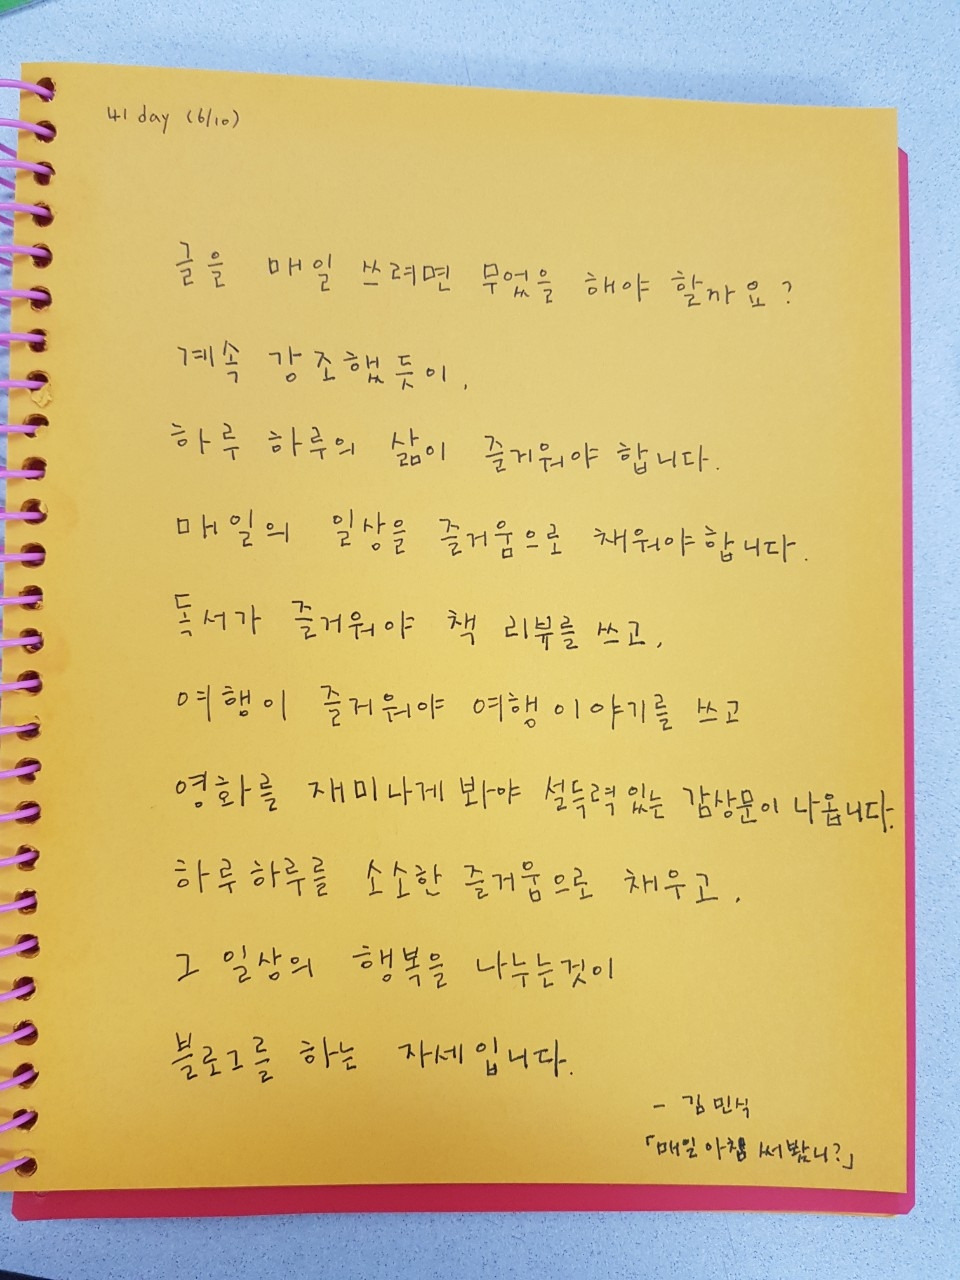 41 day (6/10)
글을 매일 쓰려면 무엇을 해야 할까요?
계속 강조했듯이,
하루 하루의 삶이 즐거워야 합니다.
매일의 일상을 즐거움으로 채워야합니다.
독서가 즐거워야 책 리뷰를 쓰고,
여행이 즐거워야 여행이야기를 쓰고
영화를 재미나게 봐야 설득력있는 감상문이 나옵니다.
하루하루를 소소한 즐거움으로 채우고,
그 일상의 행복을 나누는것이
블로그를 하는 자세입니다.
- 김민식
「매일 아침 써봤니?」